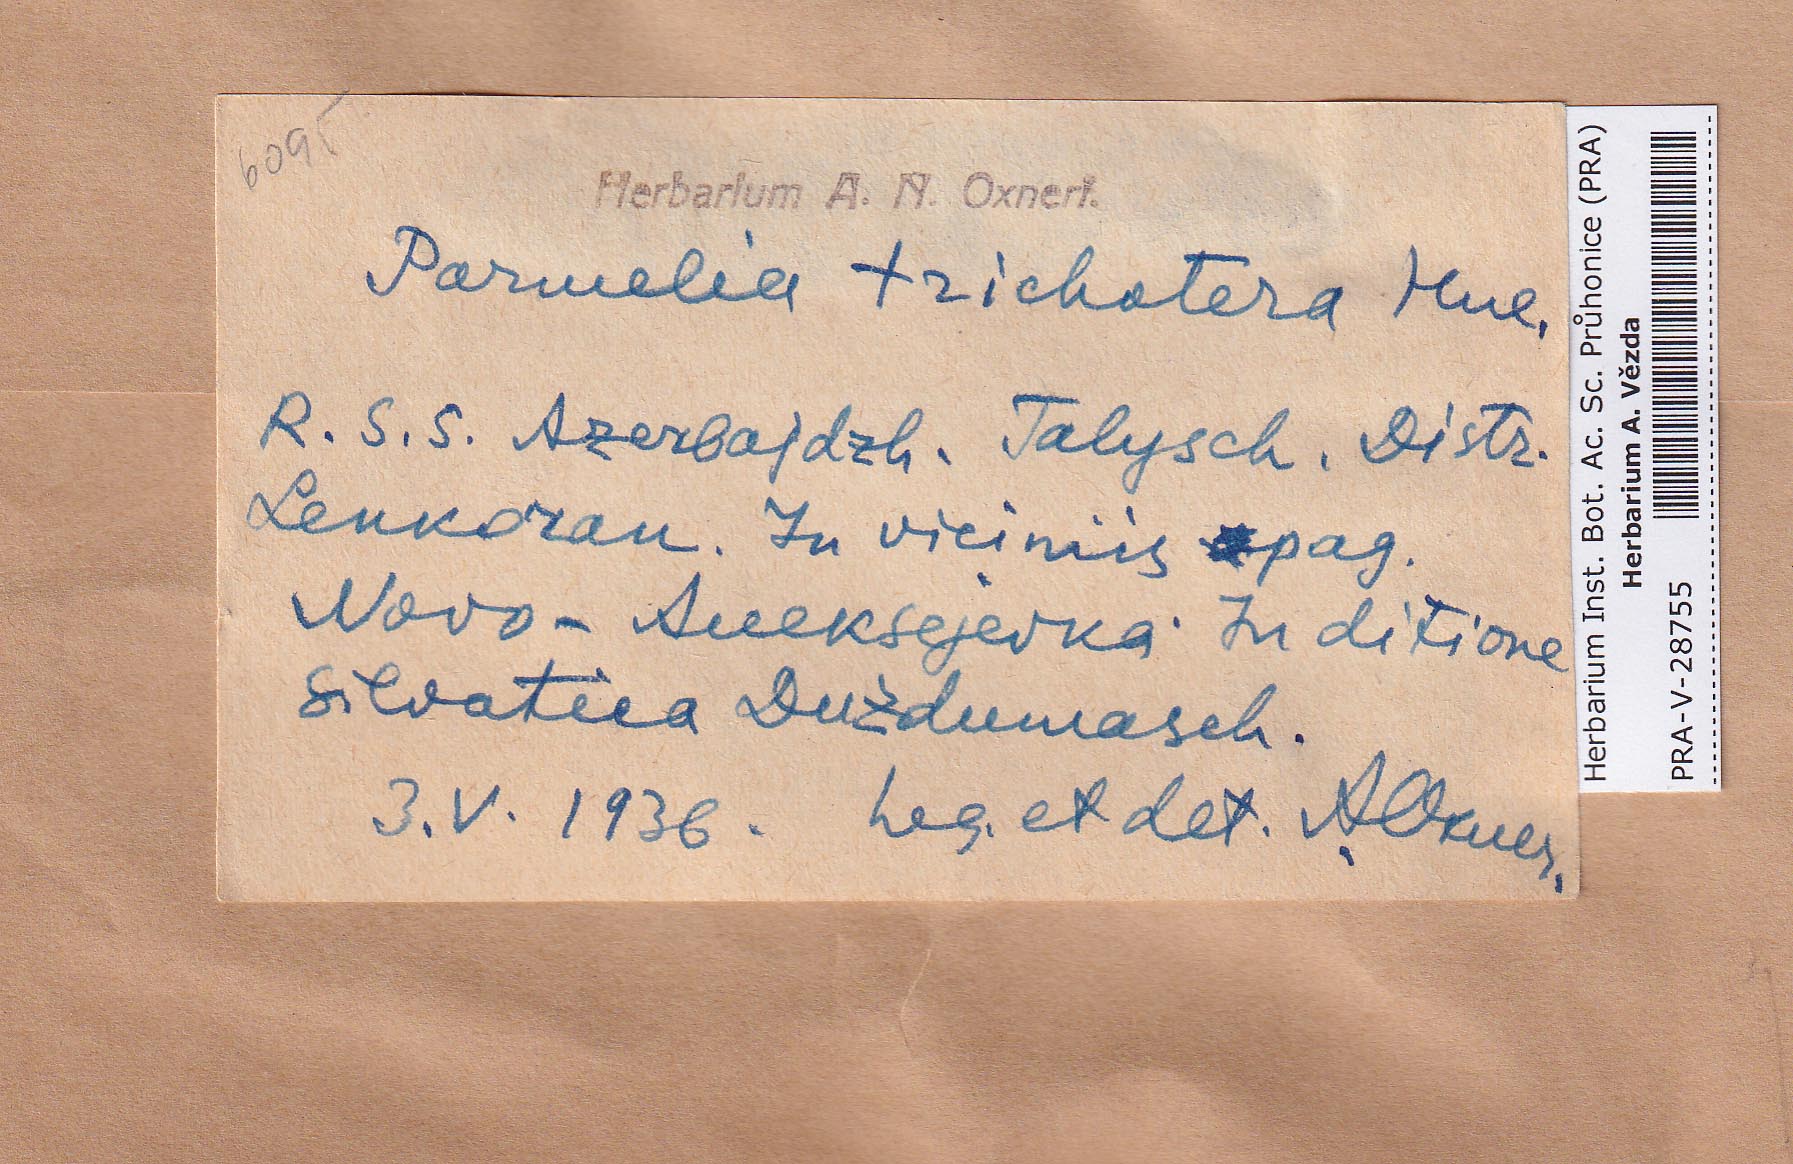 6095
Herbarium A. N. Oxneri.
Parmelia trichotera Hue.
R. S. S. Azerbajdzh. Talysch. Distr.
Lenkoran. In viciniis pag.
Novo - Alleksejevka. In ditione
silvatica Duždumasch.
3. V. 1936. Leg. et det. A Oxner.
Herbarium Inst. Bot. Ac. Sc. Průhonice (PRA)
Herbarium A. Vězda
PRA-V-28755